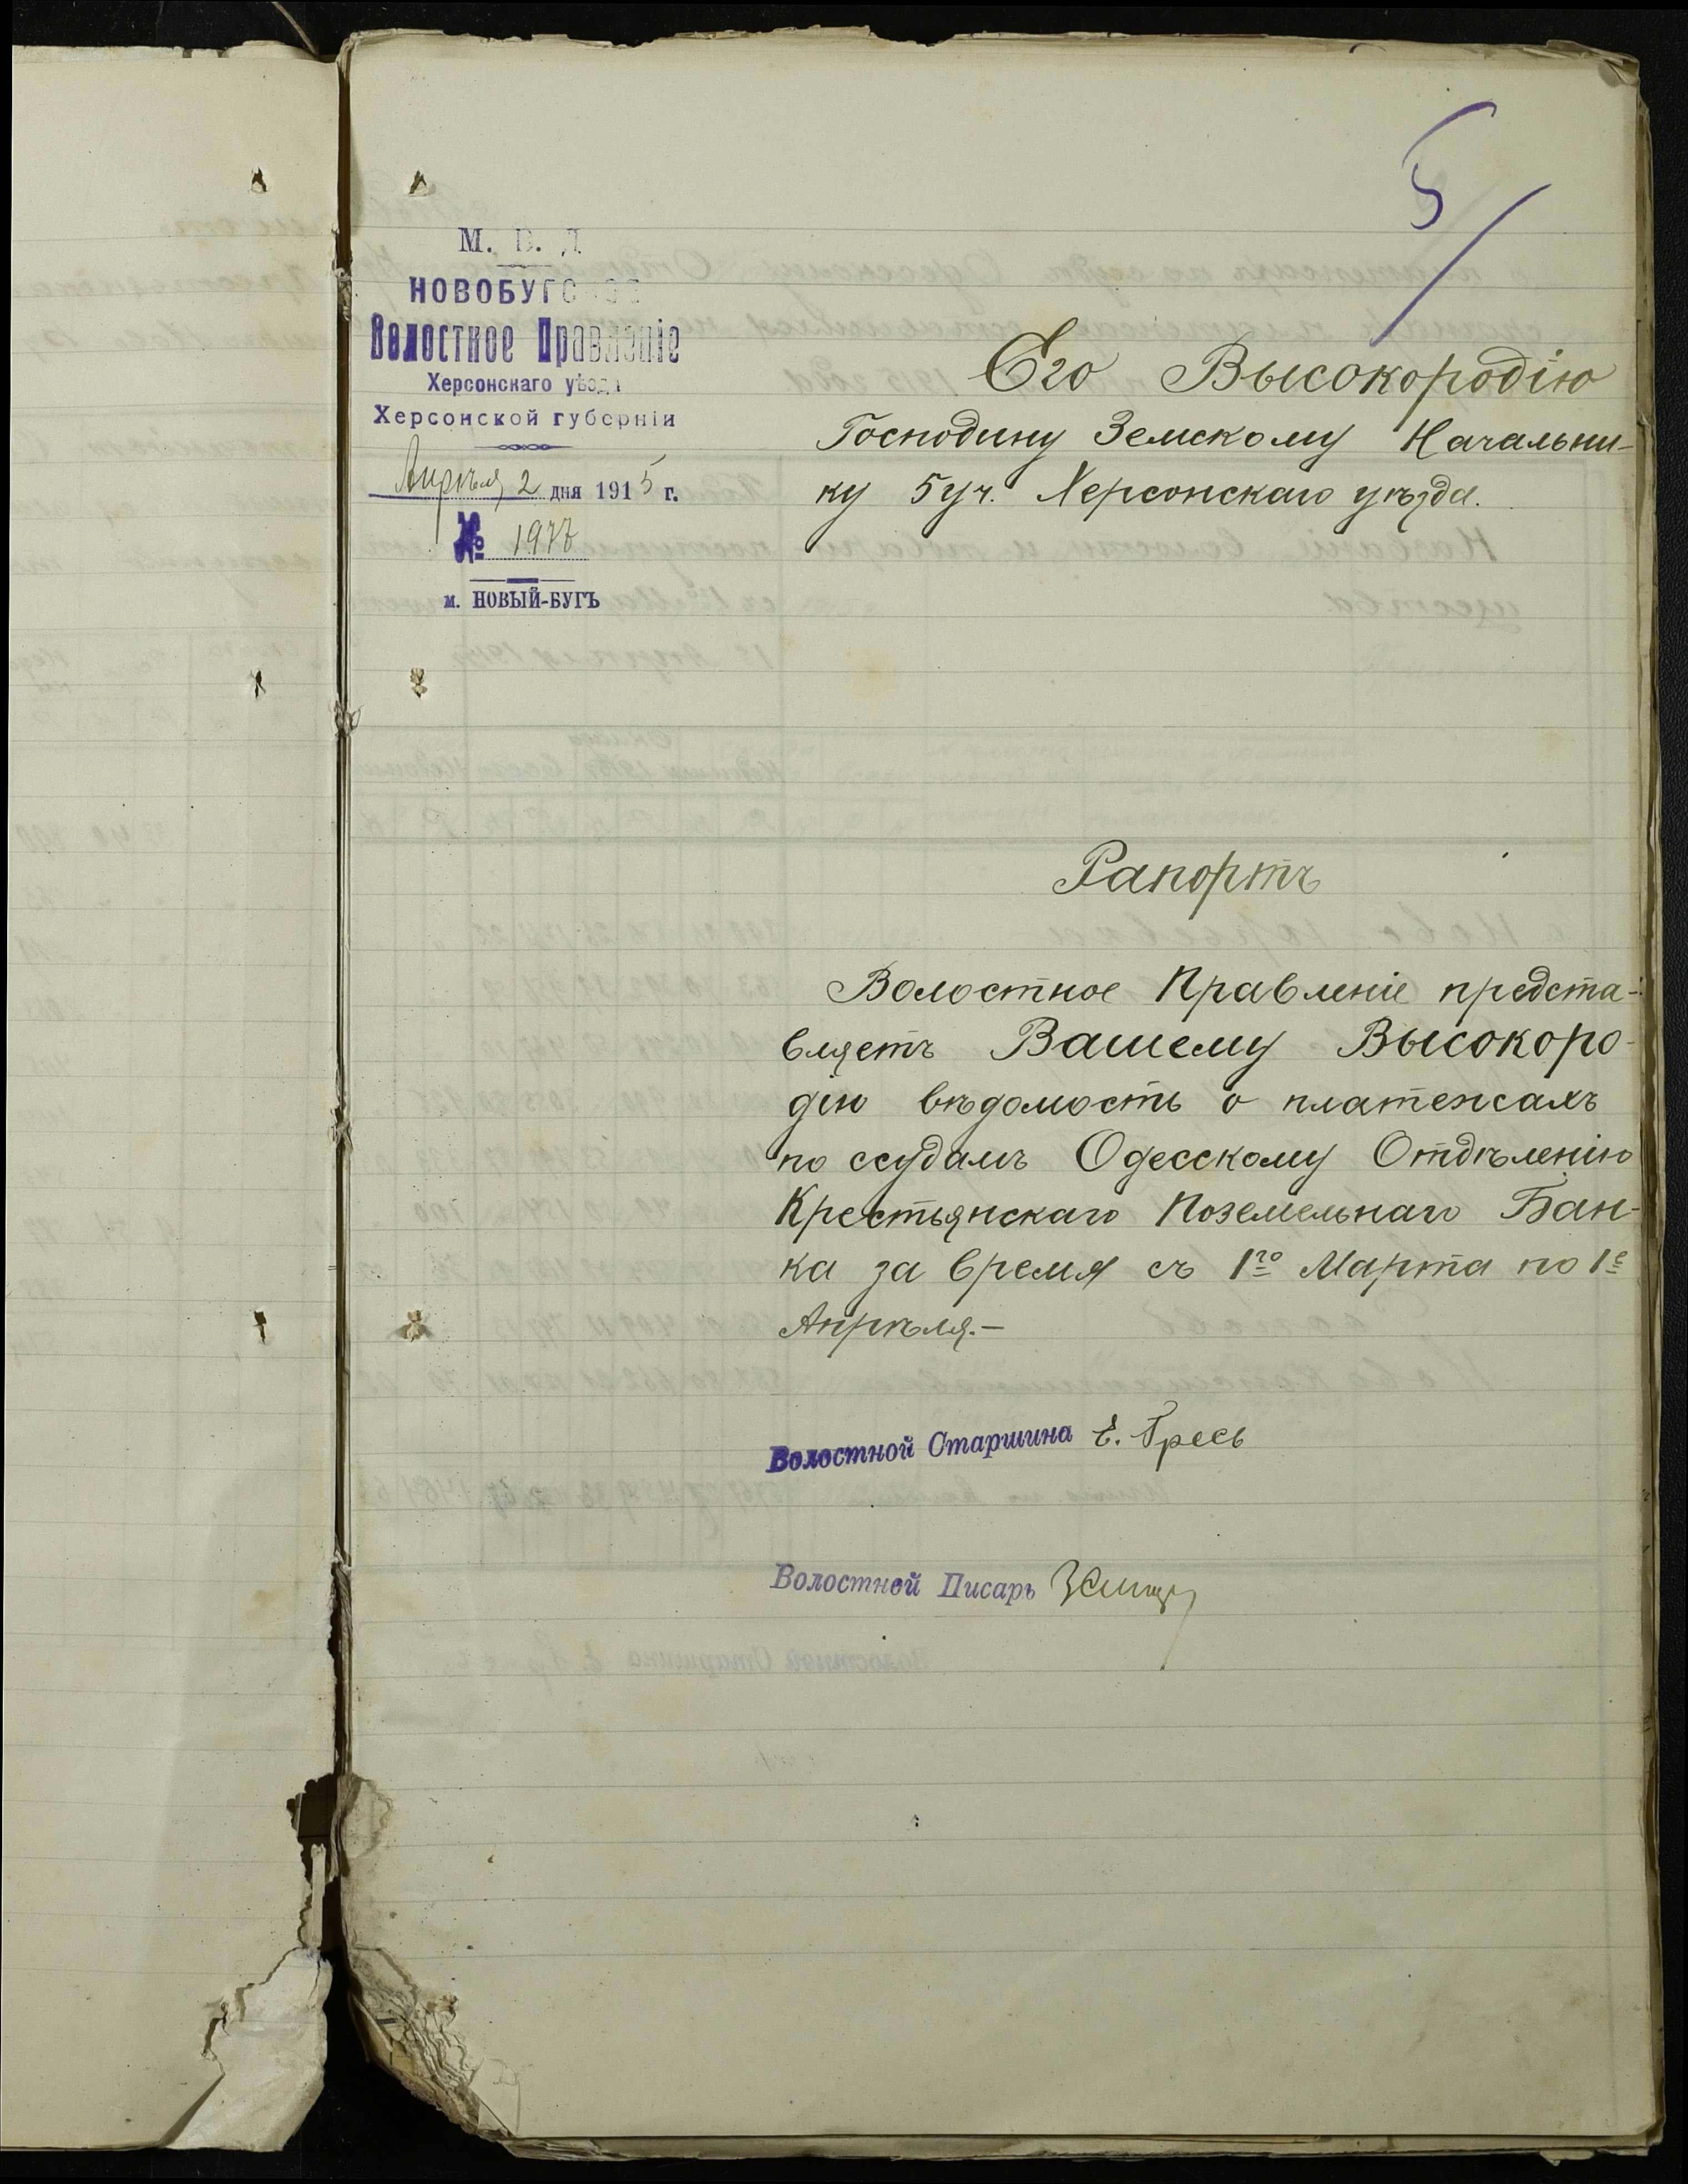 5
М. В. Д.
НОВОБУГСКОЕ
Волостное Правленіе
Херсонскаго уѣзда
Херсонской губерніи
Апрѣля 2 дня 1915 г.
№
м. НОВЫЙ-БУГЪ
Его Высокородію
Господину Земскому Начальни-
ку 5 уч. Херсонскаго уѣзда.
Рапортъ
Волостное Правленіе предста-
вляетъ Вашему Высокоро-
дію вѣдомость о платежахъ
по ссудамъ Одесскому Отдѣленію
Крестьянскаго Поземельнаго Бан-
ка за время съ 1го Марта по 1е
Апрѣля.—
Волостной Старшина Е. Гресь
Волостной Писарь